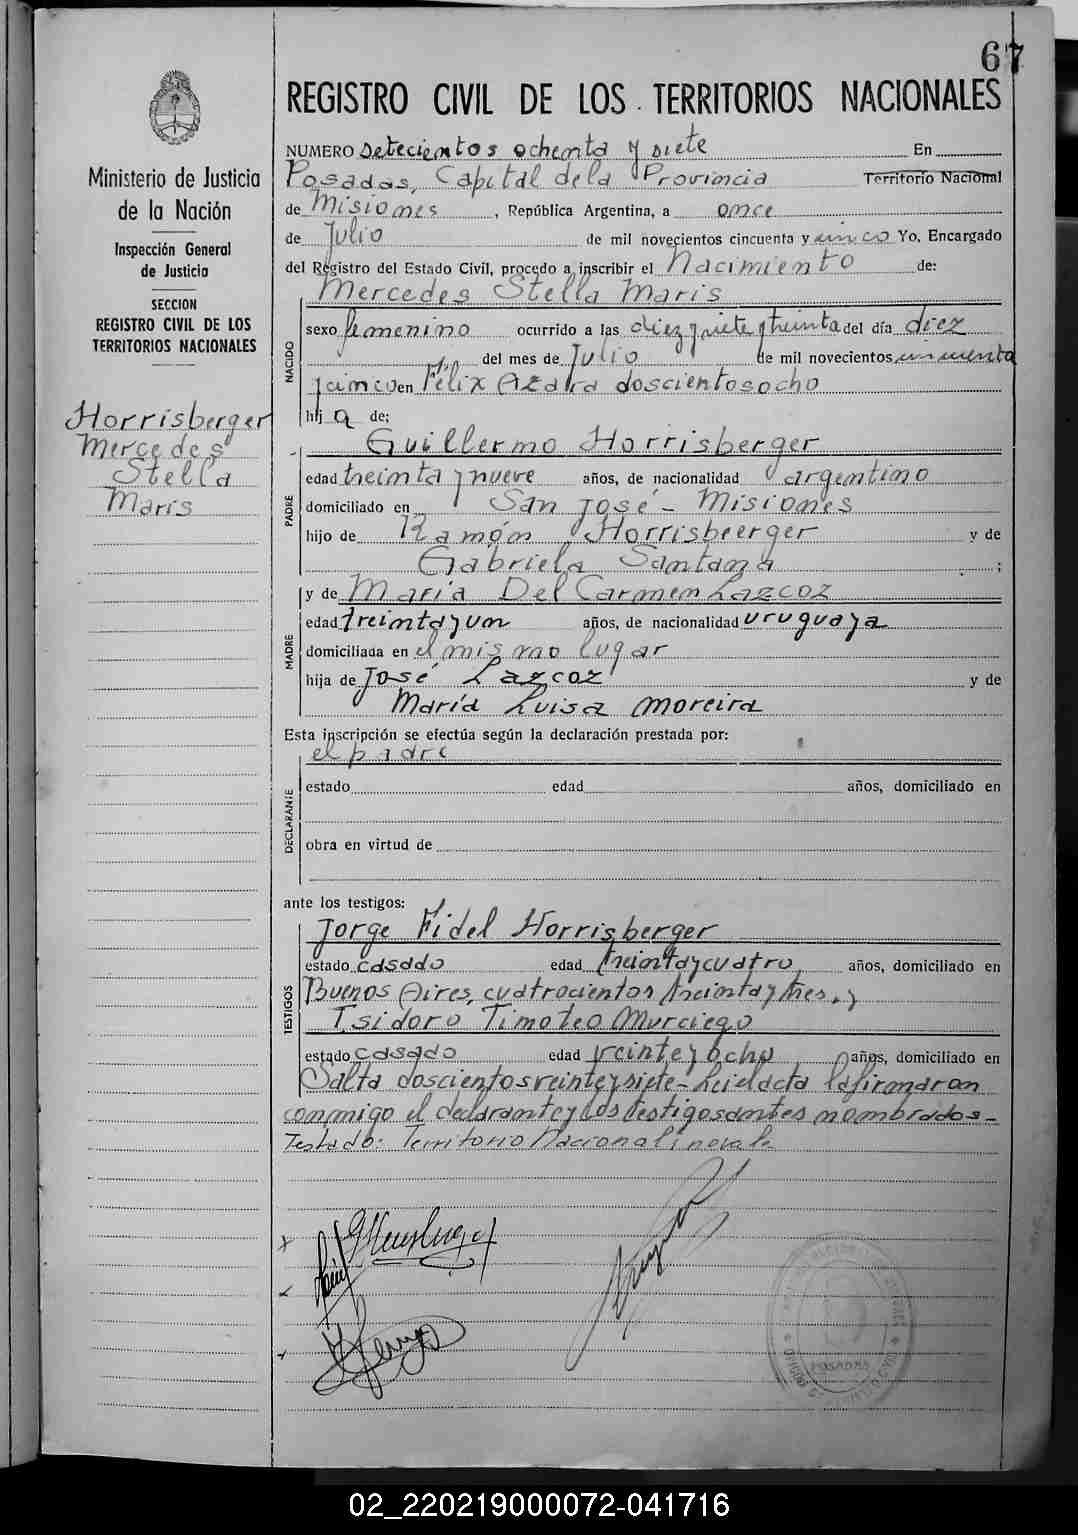 67
REGISTRO CIVIL DE LOS TERRITORIOS NACIONALES
Ministerio de Justicia
de la Nación
Inspección General
de Justicia
SECCION
REGISTRO CIVIL DE LOS
TERRITORIOS NACIONALES
Horrisberger
Mercedes
Stella
Maris
NUMERO Setecientos ochenta y siete En
Posadas, Capital de la Provincia Territorio Nacional
de Misiones, República Argentina, a once
de Julio de mil novecientos cincuenta y cinco Yo, Encargado
del Registro del Estado Civil, procedo a inscribir el Nacimiento de:
Mercedes Stella Maris
NACIDO
sexo femenino ocurrido a las diez y siete y treinta del día diez
del mes de Julio de mil novecientos cincuenta
y cinco en Félix Azara doscientos ocho
hija de:
Guillermo Horrisberger
PADRE
edad treinta y nueve años, de nacionalidad argentino
domiciliado en San José - Misiones
hijo de Ramón Horrisbeerger y de
Gabriela Santana ;
y de Maria Del Carmen Lazcoz
MADRE
edad treinta y un años, de nacionalidad uruguaya
domiciliada en el mismo lugar
hija de José Lazcoz y de
María Luisa Moreira
Esta inscripción se efectúa según la declaración prestada por:
el padre
DECLARANTE
estado edad años, domiciliado en
obra en virtud de
ante los testigos:
Jorge Fidel Horrisberger
TESTIGOS
estado casado edad treinta y cuatro años, domiciliado en
Buenos Aires, cuatrocientos treinta y tres, y
Isidoro Timoteo Murciego
estado casado edad veinte y ocho años, domiciliado en
Salta doscientos veinte y siete - Leí el acta la firmaron
conmigo el declarante y los testigos antes nombrados -
Testado: Territorio Nacional: no vale
POSADAS
02_220219000072-041716